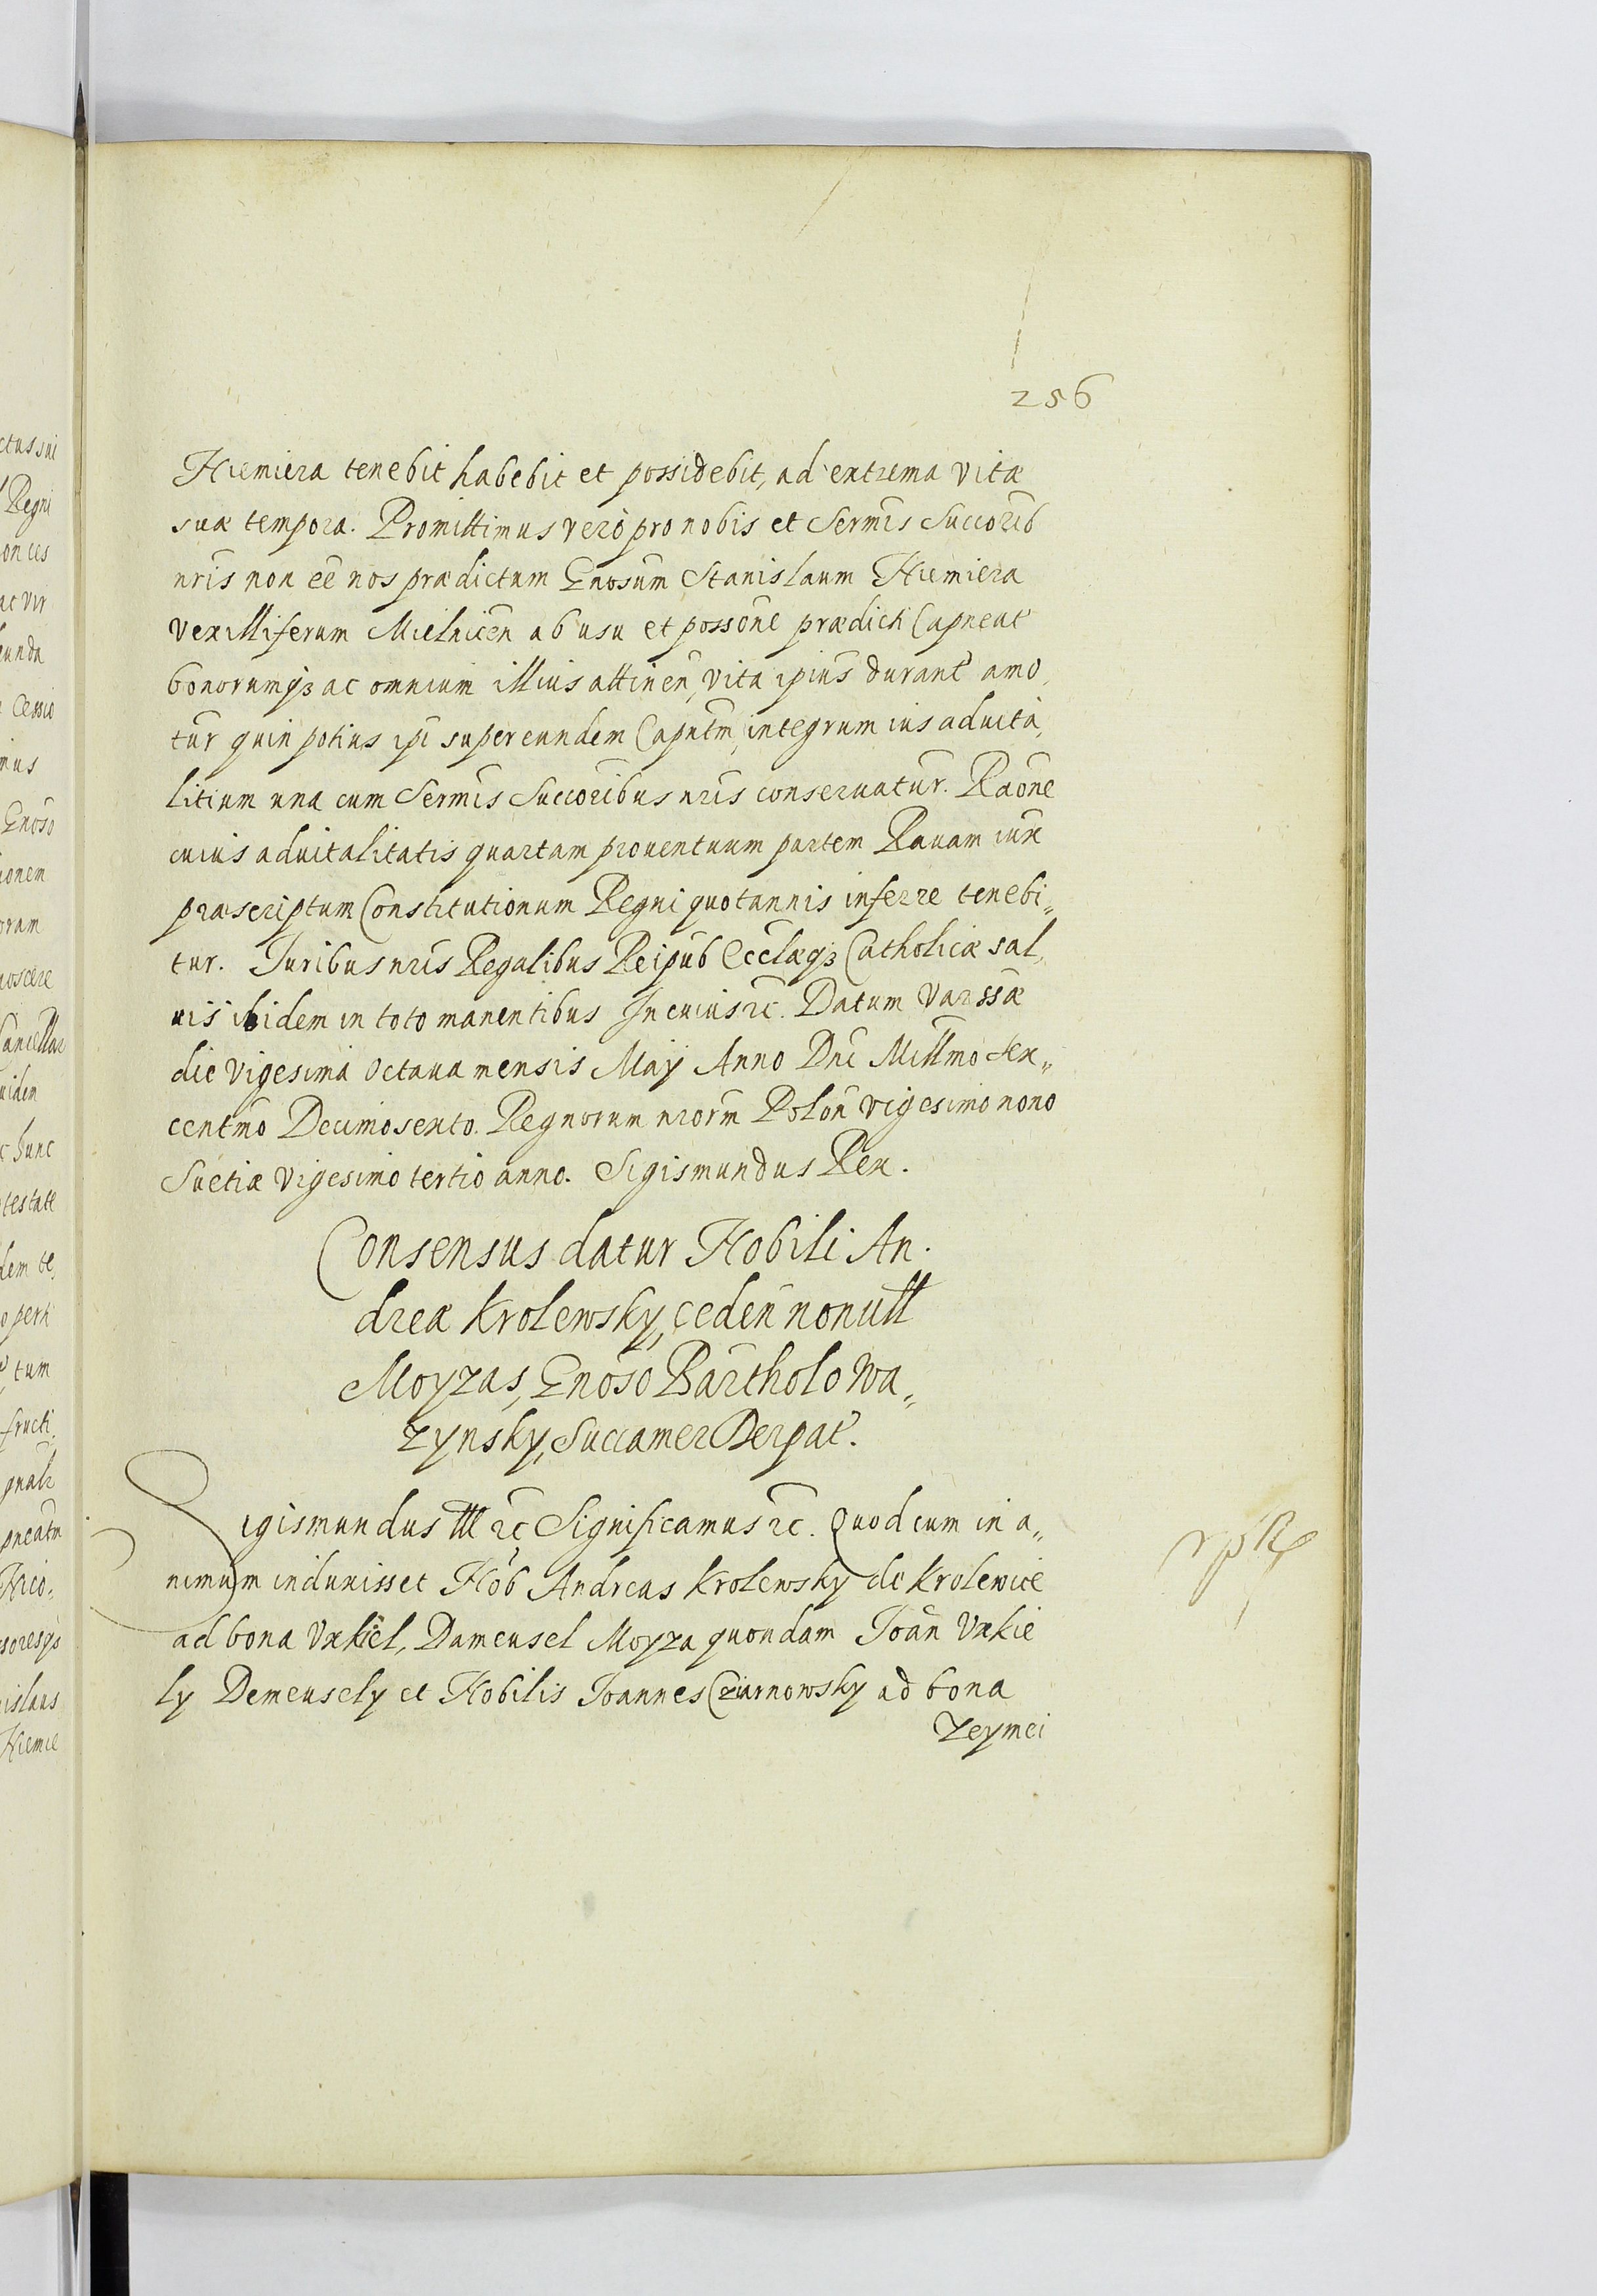 256
Niemiera tenebit habebit et possidebit, ad extrema vitæ
suæ tempora. Promittimus verò pro nobis et Sermis Succorib
nris non eē nos prædictum Gnosum Stanislaum Niemiera
vexilliferum Mielnicen ab usu et possone prædicti Capneat
bonorumqȝ ac omnium illius attinen, vita ipius durant amo,
tur quin potius ipi super eundem Caputm, integrum ius aduita,
litium una cum Sermis Succoribus nris conseruatur. Raone
cuius aduitalitatis quartam prouentuum partem Rauam iux
præscriptum Constitutionum Regni quotannis inferre tenebi„
tur. Iuribus nris Regalibus Reipub Ecclæqȝ Catholicæ sal,
uis ibidem in toto manentibus In cuius rc. Datum Varssæ
die vigesima octaua mensis Maij Anno Dni Millmo sex„
centmo Decimosexto. Regnorum nrorm Polon vigesimo nono
Suetiæ vigesimo tertio anno. Sigismundus Rex.
Consensus datur Nobili An.
dreæ Krolewsky, ceden nonull
Moyzas, Gnoso Bartholo Wa„
zynsky, Succamer Derpat.
Sigismundus III rc Significamus rc. Quod cum in a„
nimum induxisset Nob Andreas Krolewsky de Krolewice
ad bona Vxkiel, Dameusel Moyza quondam Ioan Vxkie
ly Demeusely et Nobilis Ioannes Cziarnowsky ad bona
Zeymei